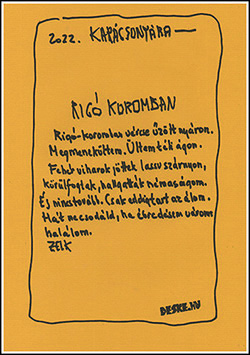 2022. KARÁCSONYÁRA
RIGÓ KOROMBAN
Rigó-koromban vércse űzött nyáron.
Megmenekültem. Ültem ták ágon.
Fehér viharok jöttek lassu szárnyon,
körülfogtak, hallgatták némaságom.
És nincs tovább. Csak eddig tart az álom.
Hát ne csodáld, ha ébredésem várom
halálom.
ZELK
DESKE.HU